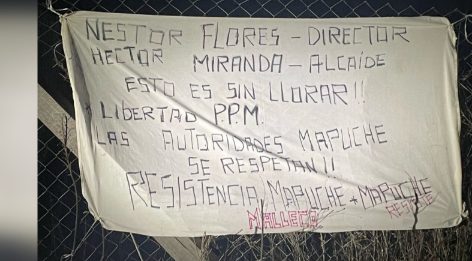 NESTOR FLORES - DIRECTOR
HECTOR MIRANDA - ALCAÍDE
ESTO ES SIN LLORAR!!
LIBERTAD P.P.M.
LAS AUTORIDADES MAPUCHE
SE RESPETAN!!
RESISTENCIA MAPUCHE + MAPUCHE
MALLECO